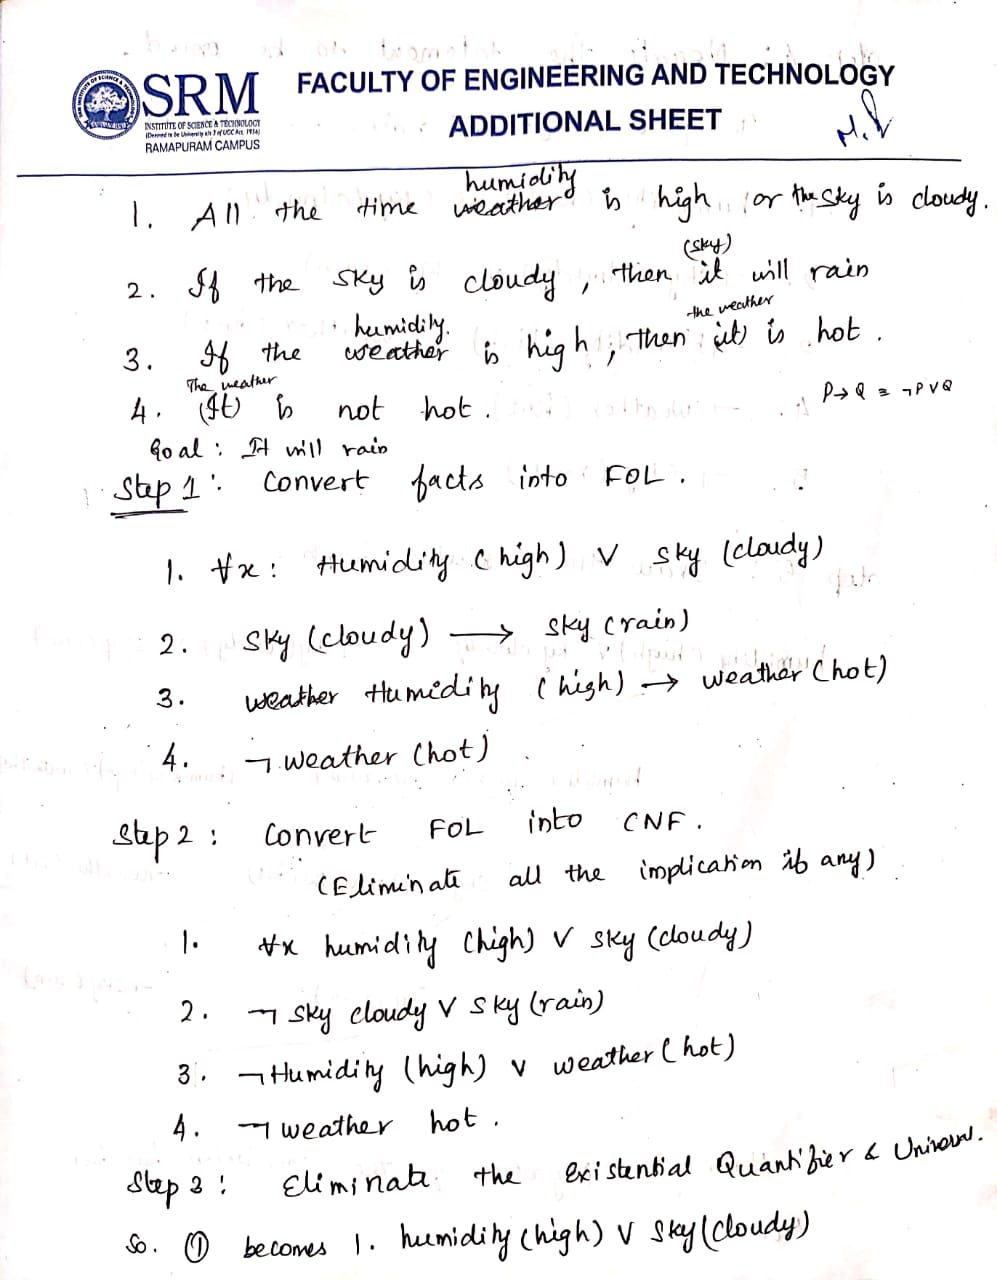 SRM
INSTITUTE OF SCIENCE & TECHNOLOGY
(Deemed to be University u/s 3 of UGC Act, 1956)
RAMAPURAM CAMPUS
FACULTY OF ENGINEERING AND TECHNOLOGY
ADDITIONAL SHEET
humidity
1. All the time weather is high or the sky is cloudy.
(sky)
2. If the sky is cloudy, then it will rain
humidity. the weather
3. If the weather is high, then (it) is hot.
The weather
4. (It) is not hot. P→Q ≡ ¬P∨Q
Goal : It will rain
Step 1: Convert facts into FOL.
1. ∀x: Humidity (high) ∨ sky (cloudy)
2. Sky (cloudy) ⟶ sky (rain)
3. weather Humidity (high) → weather (hot)
4. ¬ weather (hot)
Step 2: Convert FOL into CNF.
(Eliminate all the implication if any)
1. ∀x humidity (high) ∨ sky (cloudy)
2. ¬ sky cloudy ∨ sky (rain)
3. ¬ Humidity (high) ∨ weather (hot)
4. ¬ weather hot.
Step 3: Eliminate the Existential Quantifier &
So. ① becomes 1. humidity (high) ∨ sky (cloudy)